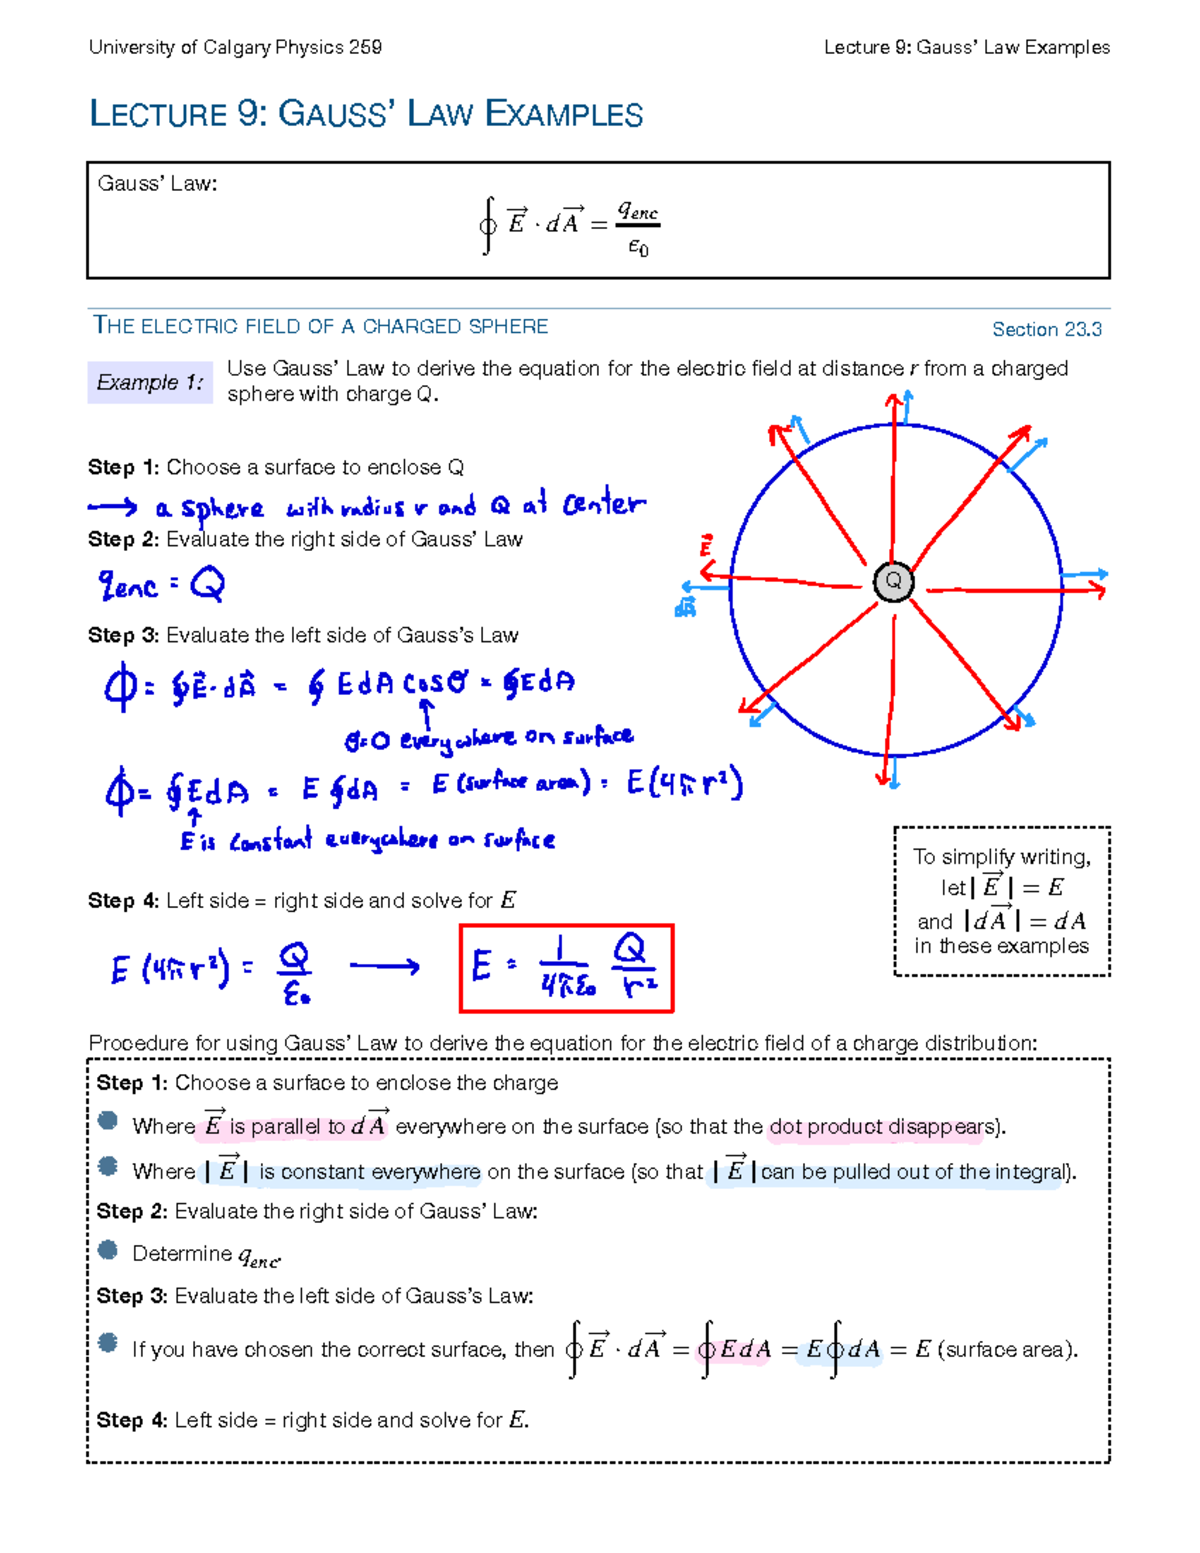 University of Calgary Physics 259 Lecture 9: Gauss' Law Examples
LECTURE 9: GAUSS' LAW EXAMPLES
Gauss' Law:
∮ E⃗ · dA⃗ = q_enc / ε₀
THE ELECTRIC FIELD OF A CHARGED SPHERE Section 23.3
Example 1: Use Gauss' Law to derive the equation for the electric field at distance r from a charged
sphere with charge Q.
Step 1: Choose a surface to enclose Q
→ a sphere with radius r and Q at center
Step 2: Evaluate the right side of Gauss' Law
q_enc = Q
Step 3: Evaluate the left side of Gauss's Law
Φ = ∮ E⃗ · dA⃗ = ∮ E dA cos θ = ∮ E dA
θ=0 everywhere on surface
Φ = ∮ E dA = E ∮ dA = E (surface area) = E(4πr²)
E is constant everywhere on surface
E⃗
dA⃗
Q
To simplify writing,
let | E⃗ | = E
and | dA⃗ | = dA
in these examples
Step 4: Left side = right side and solve for E
E (4πr²) = Q / ε₀ → E = 1 / 4πε₀ Q / r²
Procedure for using Gauss' Law to derive the equation for the electric field of a charge distribution:
Step 1: Choose a surface to enclose the charge
Where E⃗ is parallel to dA⃗ everywhere on the surface (so that the dot product disappears).
Where | E⃗ | is constant everywhere on the surface (so that | E⃗ | can be pulled out of the integral).
Step 2: Evaluate the right side of Gauss' Law:
Determine q_enc.
Step 3: Evaluate the left side of Gauss's Law:
If you have chosen the correct surface, then ∮ E⃗ · dA⃗ = ∮ E dA = E ∮ dA = E (surface area).
Step 4: Left side = right side and solve for E.